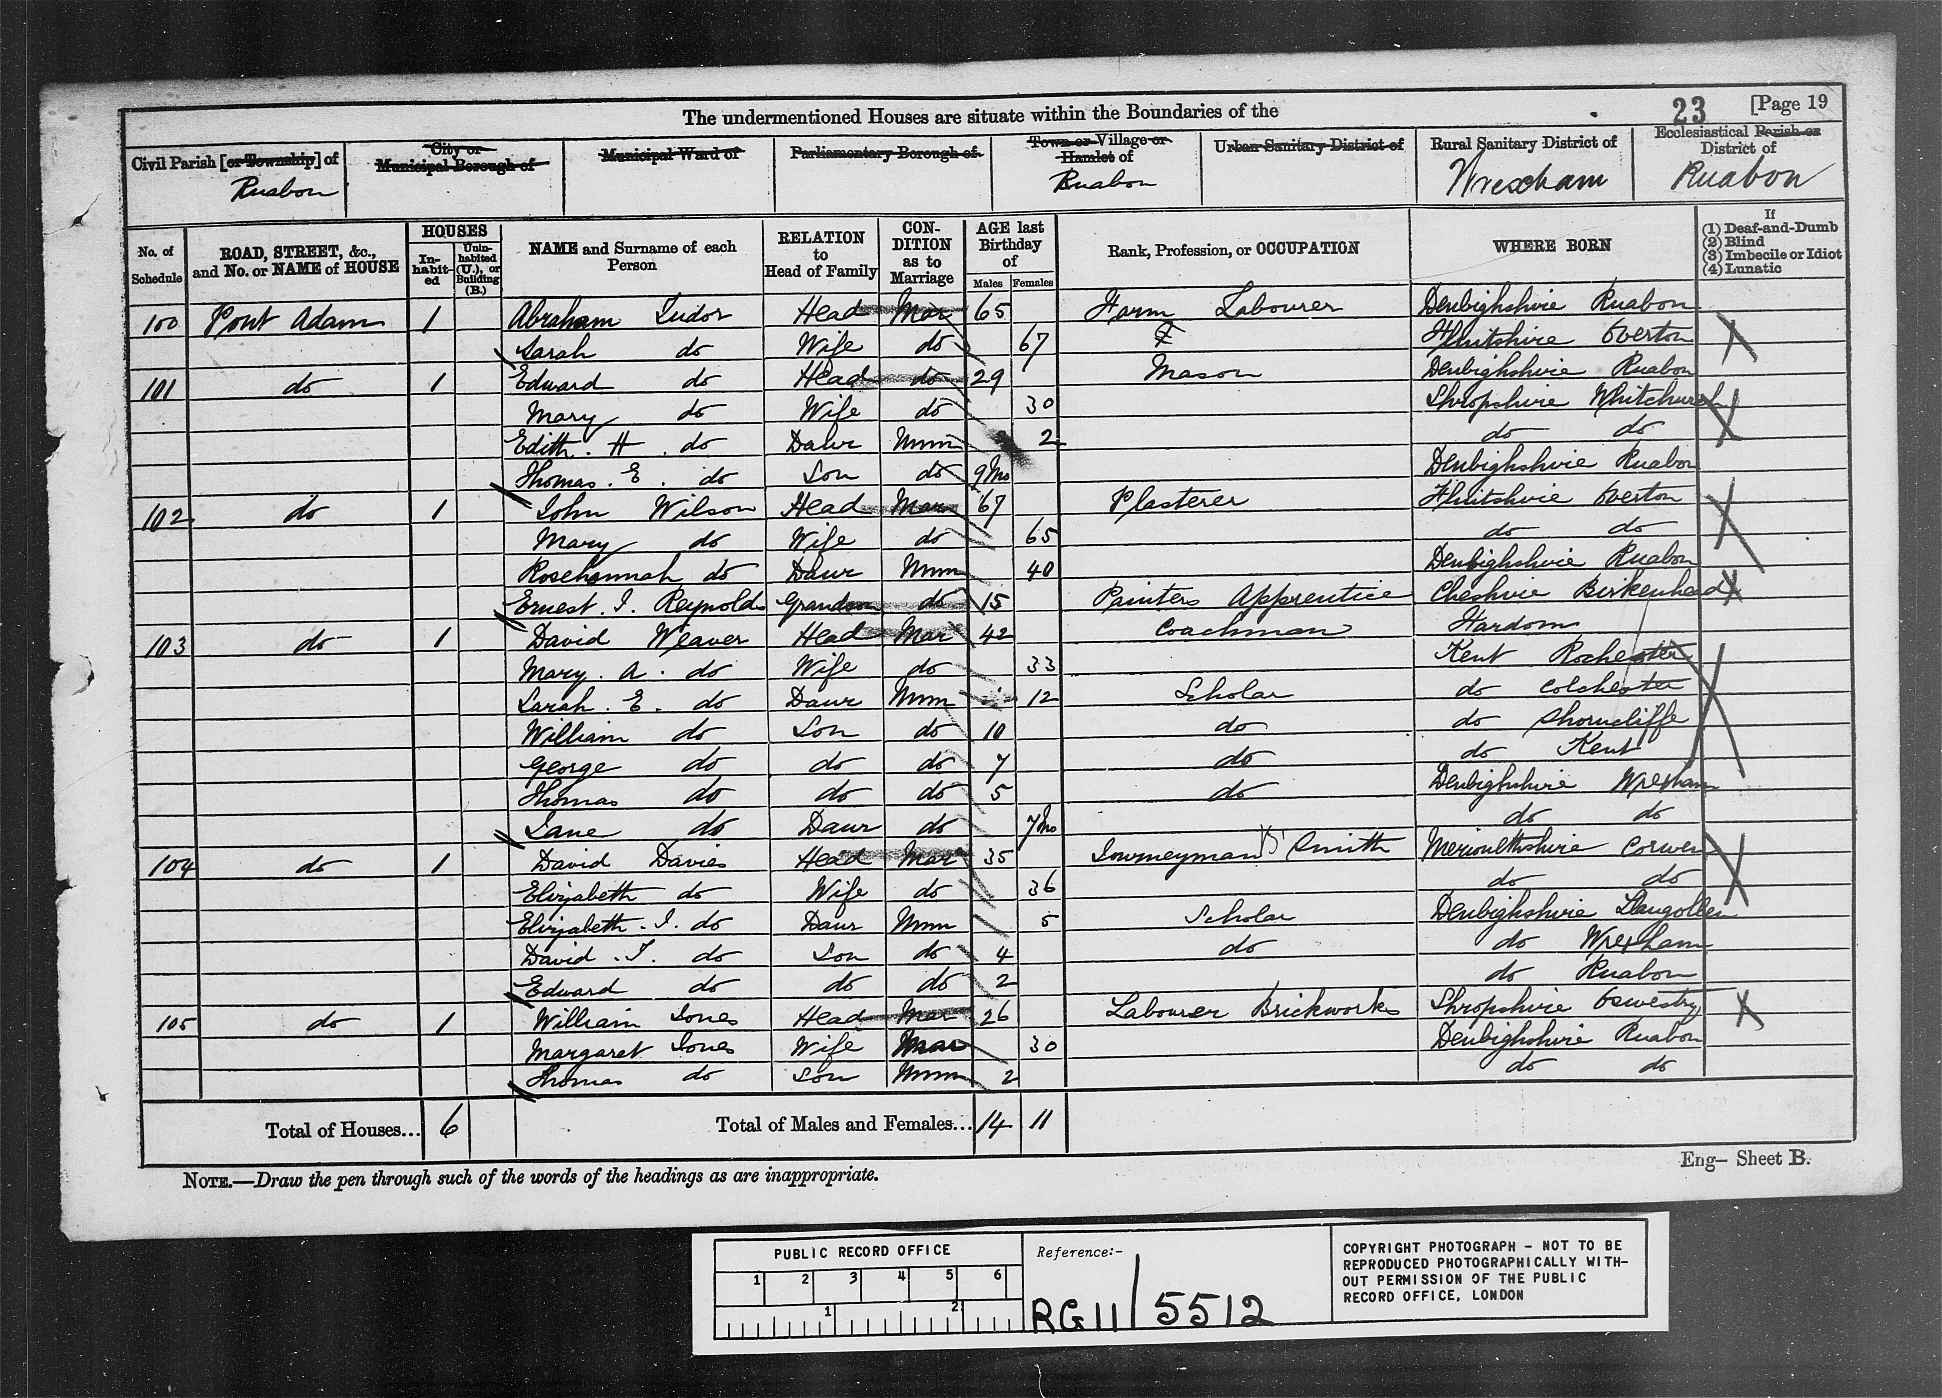 The undermentioned Houses are situate within the Boundaries of the 23 [Page 19
Civil Parish [or Township] of Ruabon
City or Municipal Borough of
Municipal Ward of
Parliamentary Borough of
Town or Village or Hamlet of Ruabon
Urban Sanitary District of
Rural Sanitary District of Wrexham
Ecclesiastical Parish or District of Ruabon
No. of Schedule
ROAD, STREET, &c., and No. or NAME of HOUSE
HOUSES
In-habit-ed
Unin-habited (U.), or Building (B.)
NAME and Surname of each Person
RELATION to Head of Family
CON-DITION as to Marriage
AGE last Birthday of
Males Females
Rank, Profession, or OCCUPATION
WHERE BORN
If
(1) Deaf-and-Dumb
(2) Blind
(3) Imbecile or Idiot
(4) Lunatic
100 Pont Adam 1 Abraham Tudor Head Mar 65 Farm Labourer Denbighshire Ruabon
Sarah do Wife do 67 Flintshire Overton
101 do 1 Edward do Head do 29 Mason Denbighshire Ruabon
Mary do Wife do 30 Shropshire Whitchurch
Edith. H. do Daur Unm 2 do do
Thomas. E. do Son do 9Mo Denbighshire Ruabon
102 do 1 John Wilson Head Mar 67 Plasterer Flintshire Overton
Mary do Wife do 65 do do
Rosehannah do Daur Unm 40 Denbighshire Ruabon
Ernest. J. Reynolds Grandson do 15 Painters Apprentice Cheshire Birkenhead
103 do 1 David Weaver Head Mar 42 Coachman
Mary. A. do Wife do 33 Kent Rochester
Sarah. E. do Daur Unm 12 Scholar do Colchester
William do Son do 10 do do Shorncliffe
George do do do 7 do do Kent
Thomas do do do 5 do Denbighshire Wrexham
Jane do Daur do 7Mo do do
104 do 1 David Davies Head Mar 35 Journeyman Smith Merionethshire Corwen
Elizabeth do Wife do 36 do do
Elizabeth. J. do Daur Unm 5 Scholar Denbighshire Llangollen
David. J. do Son do 4 do do Wrexham
Edward do do do 2 do Ruabon
105 do 1 William Jones Head Mar 26 Labourer Brickworks Shropshire Oswestry
Margaret Jones Wife Mar 30 Denbighshire Ruabon
Thomas do Son Unm 2 do do
Total of Houses... 6 Total of Males and Females... 14 11
NOTE.—Draw the pen through such of the words of the headings as are inappropriate.
Eng— Sheet B.
PUBLIC RECORD OFFICE
1 2 3 4 5 6
1 2
Reference:-
RG 11 / 5512
COPYRIGHT PHOTOGRAPH - NOT TO BE
REPRODUCED PHOTOGRAPHICALLY WITH-
OUT PERMISSION OF THE PUBLIC
RECORD OFFICE, LONDON